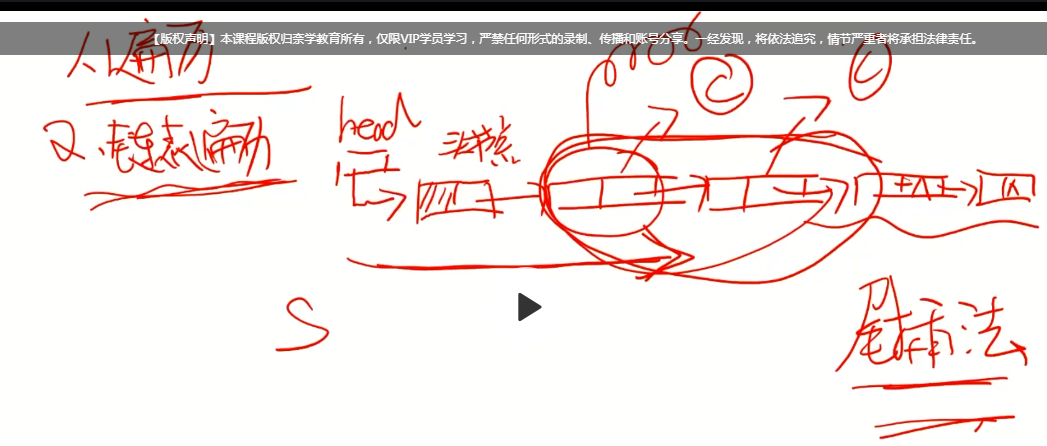 【版权声明】本课程版权归奈学教育所有，仅限VIP学员学习，严禁任何形式的录制、传播和账号分享。一经发现，将依法追究，情节严重者将承担法律责任。
遍历
2、链表遍历
head
C
C
∧
S
尾插法